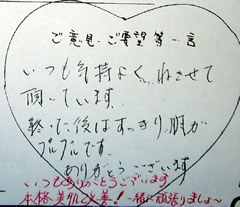 ご意見・ご要望等一言
いつも気持よく、ねさせて
頂いています。
終った後はすっきり、肌が
プルプルです。
ありがとうございます
いつもありがとうございます
本格美肌で入学!一緒に頑張りましょ〜